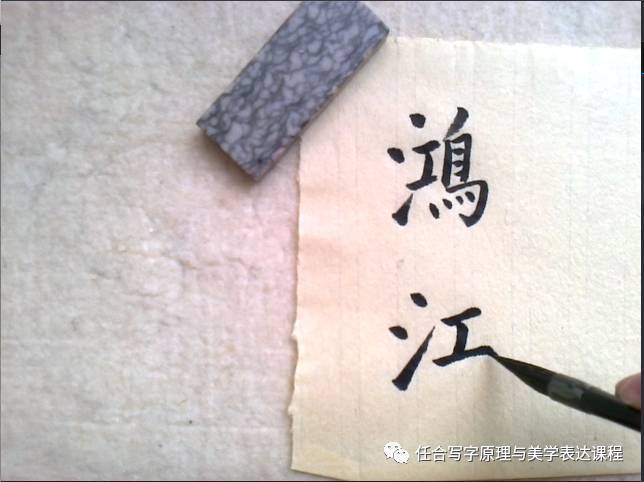 鴻
江
任合写字原理与美学表达课程